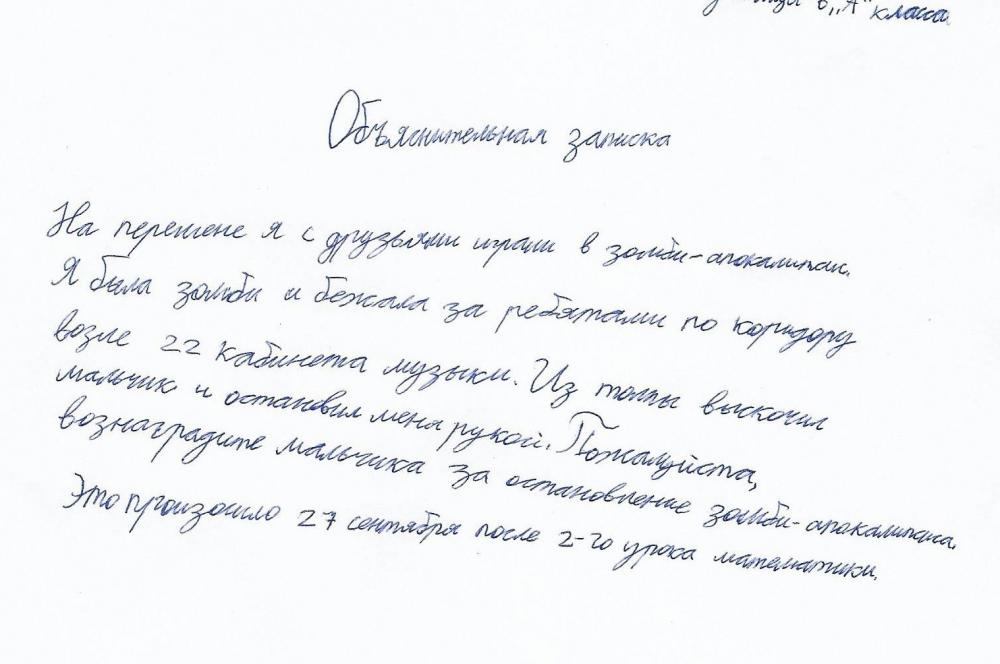 6 „А" класса
Объяснительная записка
На перемене я с друзьями играли в зомби-апокалипсис.
Я была зомби и бежала за ребятами по коридору
возле 22 кабинета музыки. Из толпы выскочил
мальчик и остановил меня рукой. Пожалуйста,
вознаградите мальчика за остановление зомби-апокалипсиса.
Это произошло 27 сентября после 2-го урока математики.